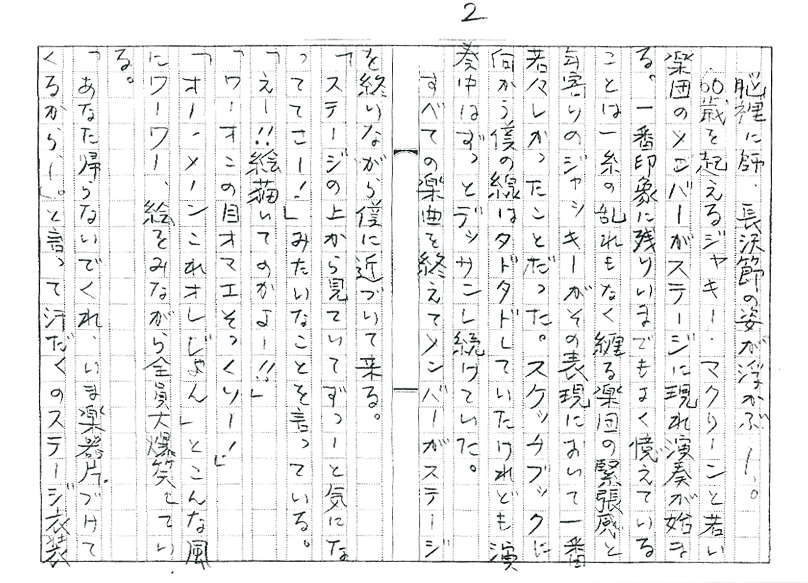 2
脳裡に師、長沢節の姿が浮かぶ―。
60歳を起えるジャキー・マクリーンと若い
楽団のメンバーがステージに現れ演奏が始ま
る。一番印象に残りいまでもよく憶えている
ことは一糸の乱れもなく纏る楽団の緊張感と
年寄りのジャッキーがその表現において一番
若々しかったことだった。スケッチブックに
向かう僕の線はタドタドしていたけれども演
奏中はずっとデッサンし続けていた。
すべての楽曲を終えてメンバーがステージ
を終りながら僕に近づいて来る。
「ステージの上から見ていてずっーと気にな
っててさー!」みたいなことを言っている。
「えー!!絵描いてのかよー!!」
「ワーオこの目オマエそっくりー!」
「オー・メーンこれオレじゃん」とこんな風
にワーワー、絵をみながら全員大爆笑してい
る。
「あなた帰らないでくれ、いま楽器片づけて
くるから!」。と言って汗だくのステージ衣装